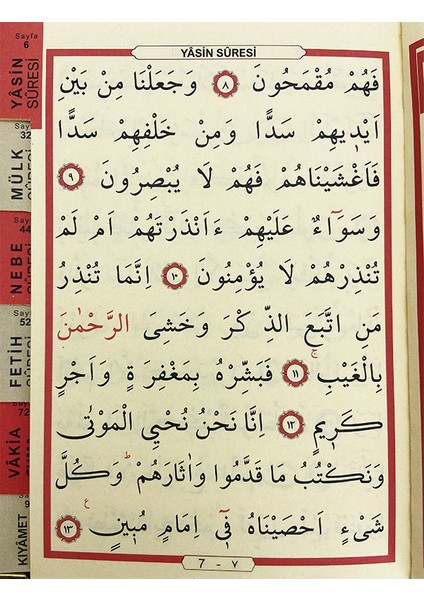 YÂSİN SÛRESİ
فَهُمْ مُقْمَحُونَ ٨ وَجَعَلْنَا مِنْ بَيْنِ
اَيْدٖيهِمْ سَدًّا وَمِنْ خَلْفِهِمْ سَدًّا
فَاَغْشَيْنَاهُمْ فَهُمْ لَا يُبْصِرُونَ ٩
وَسَوَٓاءٌ عَلَيْهِمْ ءَاَنْذَرْتَهُمْ اَمْ لَمْ
تُنْذِرْهُمْ لَا يُؤْمِنُونَ ١٠ اِنَّمَا تُنْذِرُ
مَنِ اتَّبَعَ الذِّكْرَ وَخَشِىَ الرَّحْمٰنَ
بِالْغَيْبِۚ ١١ فَبَشِّرْهُ بِمَغْفِرَةٍ وَاَجْرٍ
كَرٖيمٍ ١٢ اِنَّا نَحْنُ نُحْيِى الْمَوْتٰى
وَنَكْتُبُ مَا قَدَّمُوا وَاٰثَارَهُمْۜ وَكُلَّ
شَىْءٍ اَحْصَيْنَاهُ فٖٓى اِمَامٍ مُبٖينٍ ع ١٣
7 - ٧
Sayfa
6
YÂSİN
SÛRESİ
32
MÜLK
44
NEBE
52
FETİH
72
VÂKIA
9
KIYÂMET